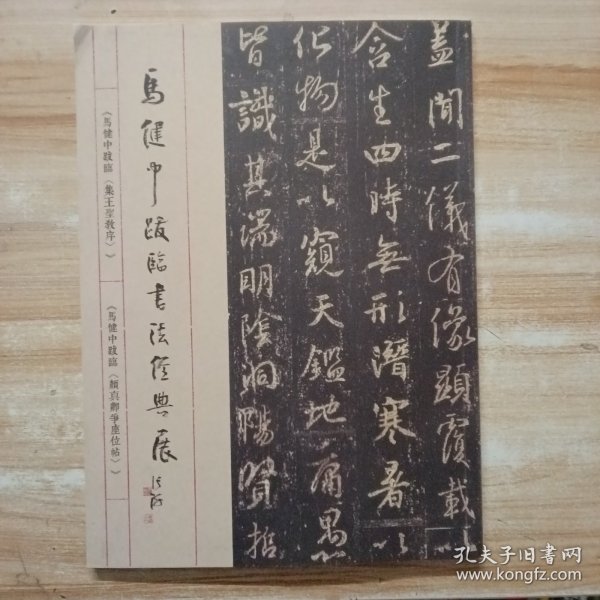 盖聞二儀有像顯覆載以
含生四時無形潛寒暑以
化物是以窺天鑑地庸愚
皆識其端明陰洞陽賢哲
馬健中跋臨書法經典展
《馬健中跋臨〈集王聖教序〉》
《馬健中跋臨〈顏真卿爭座位帖〉》
孔夫子旧书网
www.kongfz.com